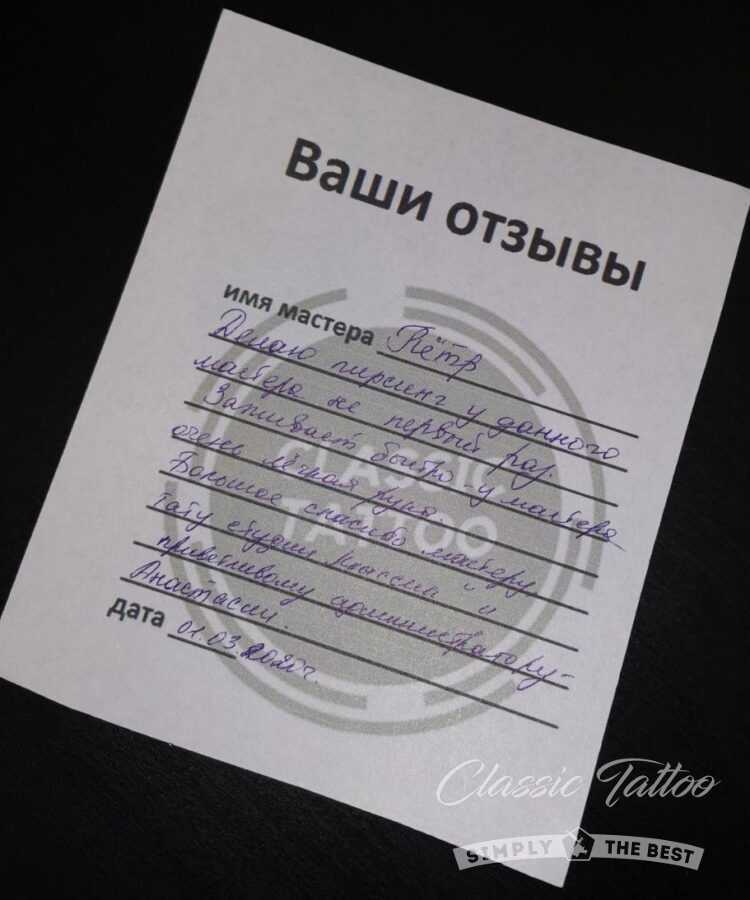 Ваши отзывы
имя мастера Пётр
Делаю пирсинг у данного
мастера не первый раз.
Заживает быстро - у мастера
очень лёгкая рука.
Большое спасибо мастеру
тату студии классик и
приветливому администратору-
Анастасии.
дата 01.03.2020г.
CLASSIC
TATTOO
Classic Tattoo
SIMPLY THE BEST